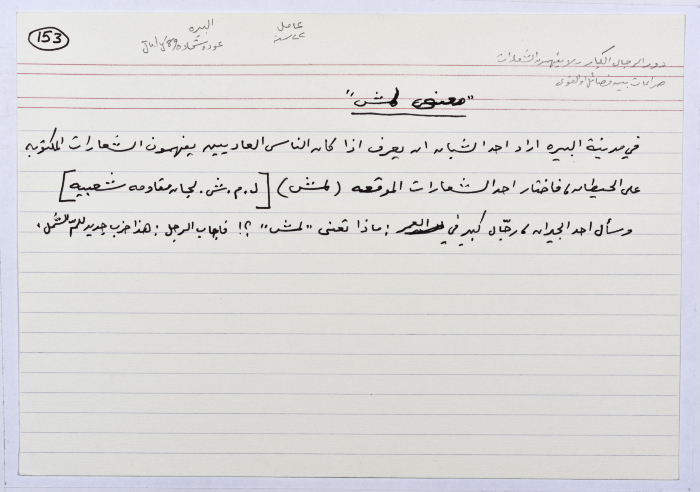 153
البيره
عودة شحاده July/89
عامل
٢٤ سنة
دور الرجال الكبار ولا يفهمون الشعارات
صراعات بين فصائل او القوى
"معنى لمش"
في مدينة البيره اراد احد الشبان ان يعرف اذا كان الناس العاديين يفهمون الشعارات المكتوبه
على الحيطان، فاختار احد الشعارات الموقعه (لمش) [ل.م.ش. لجان مقاومه شعبيه]
وسأل احد الجيران، رجّال كبير في العمر: ماذا تعني "لمش" ؟! فاجاب الرجل: هذا حزب جديد للمّ الشمل.